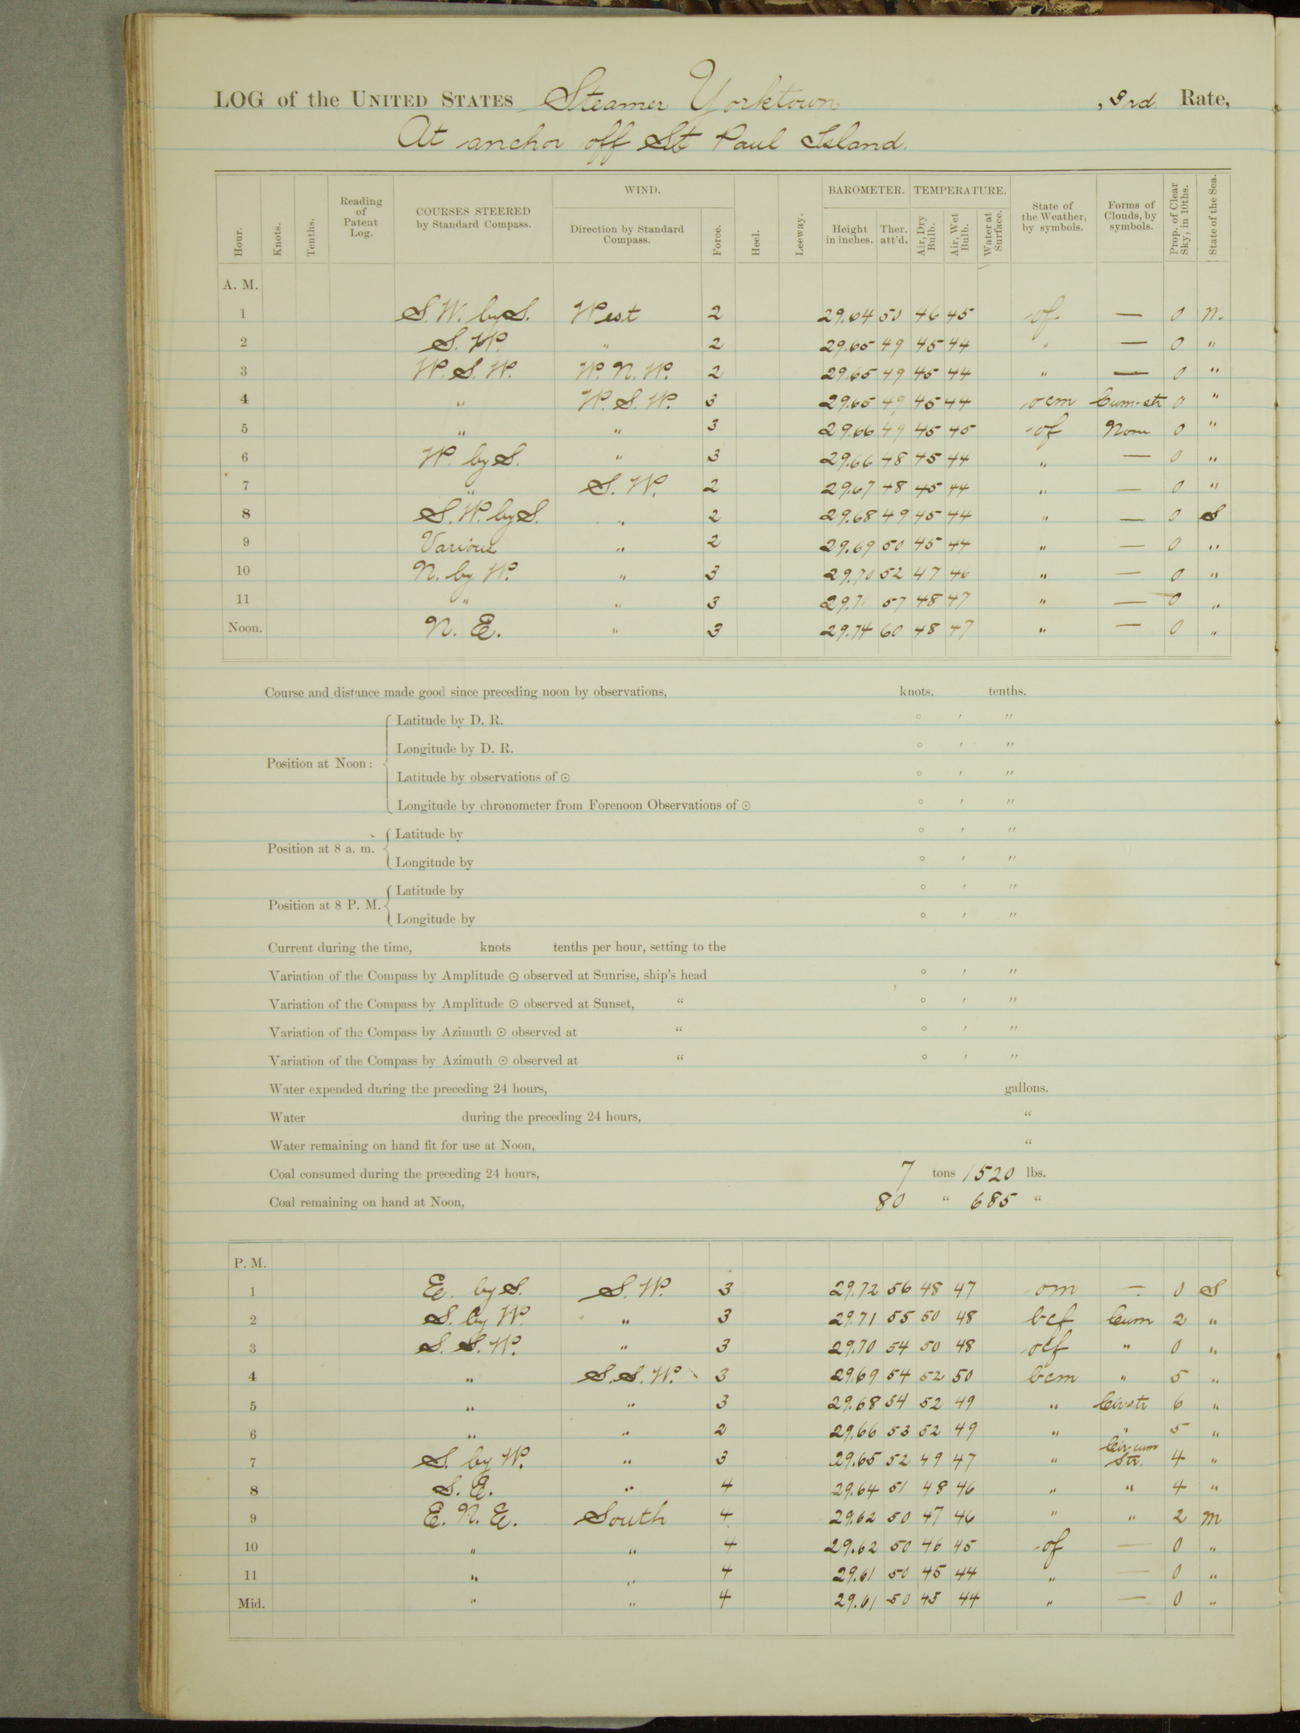 LOG of the UNITED STATES Steamer Yorktown , 3rd Rate,
At anchor off St Paul Island.
Hour. Knots. Tenths. Reading of Patent Log. COURSES STEERED by Standard Compass. WIND. Direction by Standard Compass. Force. Heel. Leeway. BAROMETER. Height in inches. Ther. att'd. TEMPERATURE. Air, Dry Bulb. Air, Wet Bulb. Water at Surface. State of the Weather, by symbols. Forms of Clouds, by symbols. Prop. of Clear Sky, in 10ths. State of the Sea.
A. M.
1 S.W. by S. West 2 29.64 50 46 45 of. — 0 m.
2 S.W. " 2 29.65 49 45 44 " — 0 "
3 W.S.W. W.N.W. 2 29.65 49 45 44 " — 0 "
4 " W.S.W. 3 29.65 49 45 44 ocm Cum-str 0 "
5 " " 3 29.66 49 45 45 of None 0 "
6 W. by S. " 3 29.66 48 45 44 " — 0 "
7 " S.W. 2 29.67 48 45 44 " — 0 "
8 S.W. by S. " 2 29.68 49 45 44 " — 0 S
9 Various " 2 29.69 50 45 44 " — 0 "
10 N. by W. " 3 29.70 52 47 46 " — 0 "
11 " " 3 29.7 57 48 47 " — 0 "
Noon. N.E. " 3 29.74 60 48 47 " — 0 "
Course and distance made good since preceding noon by observations, knots. tenths.
Latitude by D. R. ° ′ ″
Longitude by D. R. ° ′ ″
Position at Noon:
Latitude by observations of ☉ ° ′ ″
Longitude by chronometer from Forenoon Observations of ☉ ° ′ ″
Latitude by ° ′ ″
Position at 8 a. m.
Longitude by ° ′ ″
Latitude by ° ′ ″
Position at 8 P. M.
Longitude by ° ′ ″
Current during the time, knots tenths per hour, setting to the
Variation of the Compass by Amplitude ☉ observed at Sunrise, ship's head ° ′ ″
Variation of the Compass by Amplitude ☉ observed at Sunset, " ° ′ ″
Variation of the Compass by Azimuth ☉ observed at " ° ′ ″
Variation of the Compass by Azimuth ☉ observed at " ° ′ ″
Water expended during the preceding 24 hours, gallons.
Water during the preceding 24 hours, "
Water remaining on hand fit for use at Noon, "
Coal consumed during the preceding 24 hours, 7 tons 1520 lbs.
Coal remaining on hand at Noon, 80 " 685 "
P. M.
1 E. by S. S.W. 3 29.72 56 48 47 om — 0 S
2 S. by W. " 3 29.71 55 50 48 bcf Cum 2 "
3 S.S.W. " 3 29.70 54 50 48 ocf " 0 "
4 " S.S.W. 3 29.69 54 52 50 bcm " 5 "
5 " " 3 29.68 54 52 49 " Cir-str 6 "
6 " " 2 29.66 53 52 49 " " 5 "
7 S. by W. " 3 29.65 52 49 47 " Cir cum Str. 4 "
8 S.E. " 4 29.64 51 48 46 " " 4 "
9 E.N.E. South 4 29.62 50 47 46 " " 2 m
10 " " 4 29.62 50 46 45 of — 0 "
11 " " 4 29.61 50 45 44 " — 0 "
Mid. " " 4 29.61 50 45 44 " — 0 "